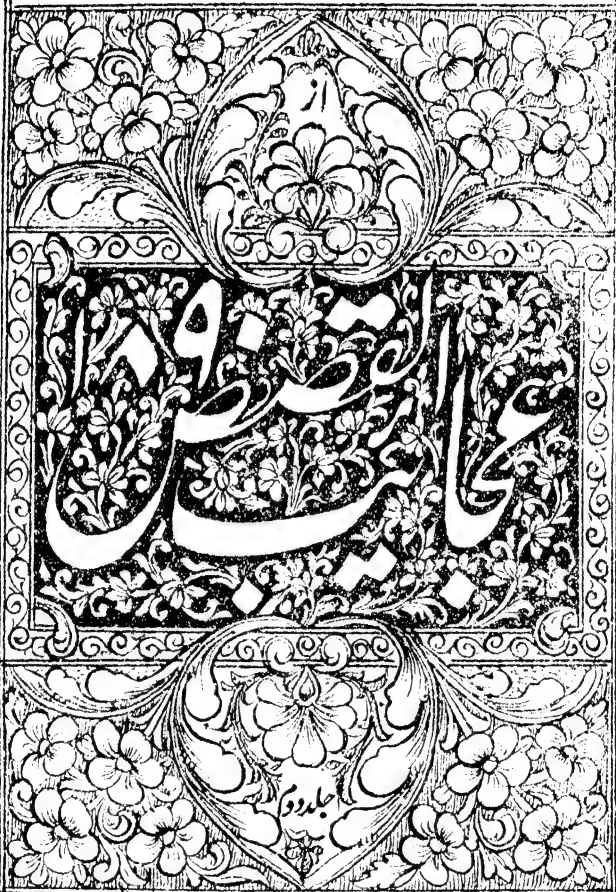 از
عجایب القصص
۱۸۹۰
جلد دوم